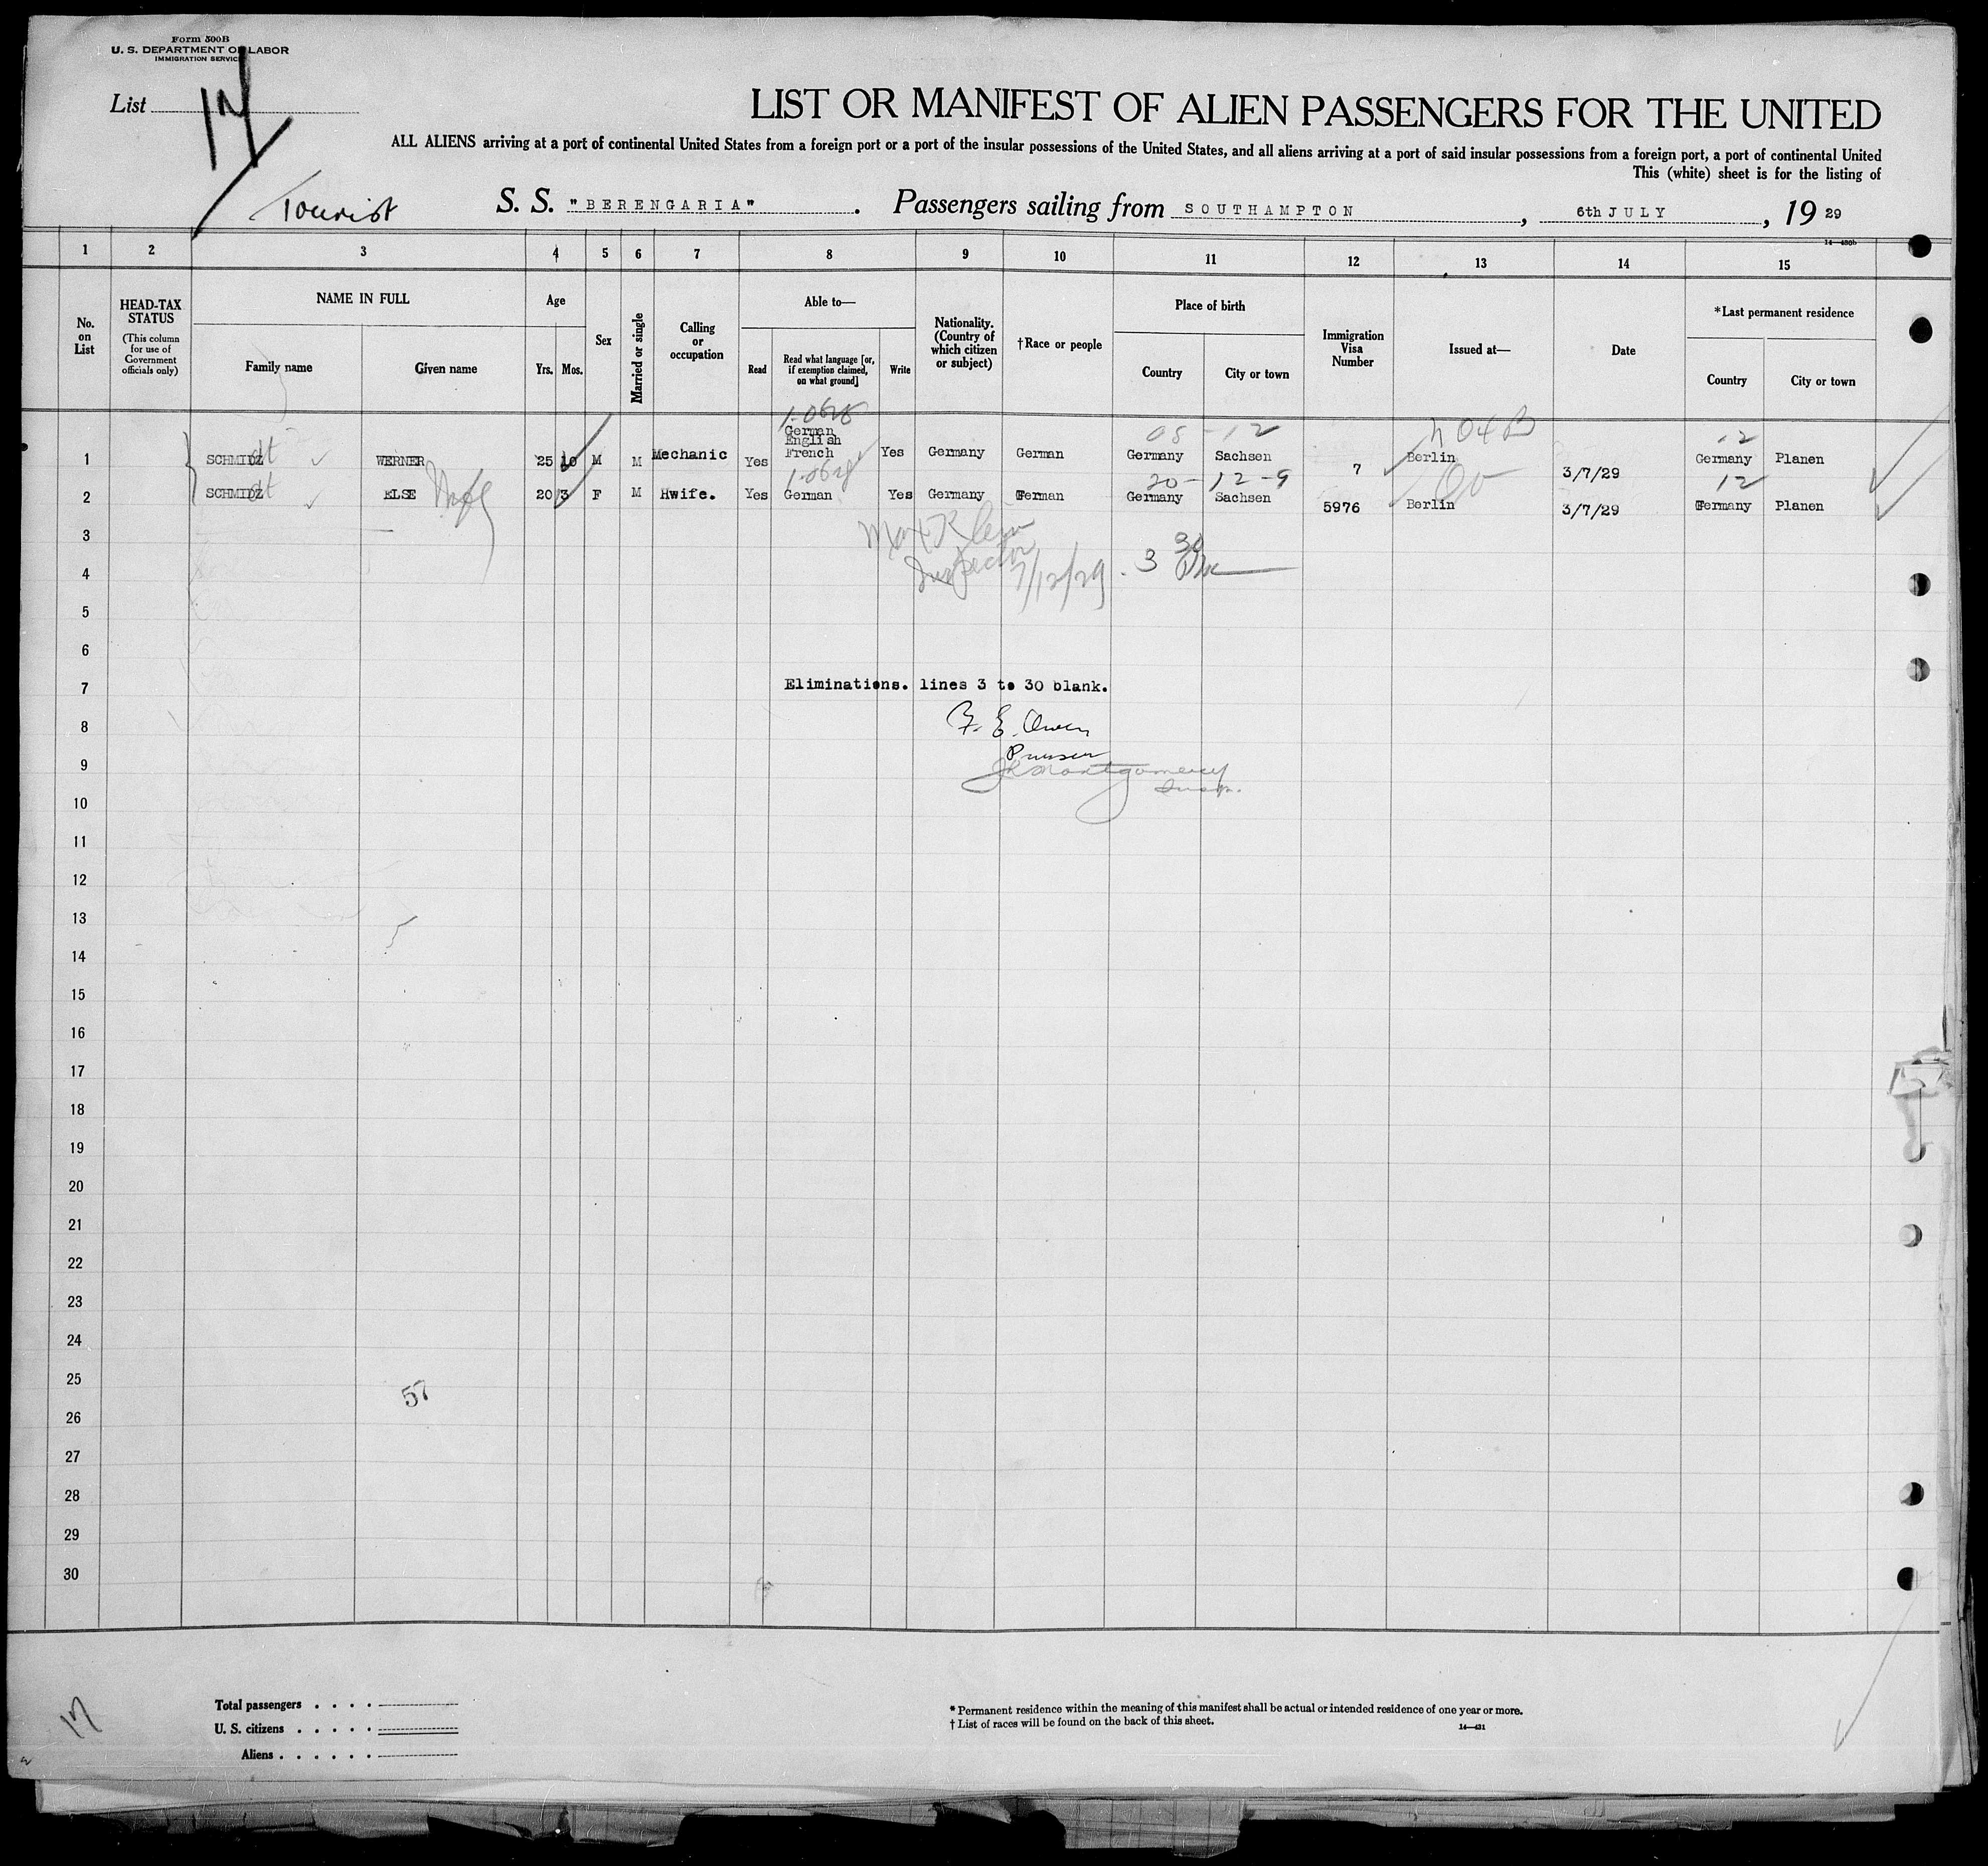 Form 500B
U. S. DEPARTMENT OF LABOR
IMMIGRATION SERVICE
List
LIST OR MANIFEST OF ALIEN PASSENGERS FOR THE UNITED
ALL ALIENS arriving at a port of continental United States from a foreign port or a port of the insular possessions of the United States, and all aliens arriving at a port of said insular possessions from a foreign port, a port of continental United
This (white) sheet is for the listing of
Tourist S. S. "BERENGARIA". Passengers sailing from SOUTHAMPTON, 6th JULY, 19 29
14—430b
1 2 3 4 5 6 7 8 9 10 11 12 13 14 15
No. on List
HEAD-TAX STATUS
(This column for use of Government officials only)
NAME IN FULL
Family name Given name
Age
Yrs. Mos.
Sex
Married or single
Calling or occupation
Able to—
Read
Read what language [or, if exemption claimed, on what ground]
Write
Nationality. (Country of which citizen or subject)
†Race or people
Place of birth
Country City or town
Immigration Visa Number
Issued at—
Date
*Last permanent residence
Country City or town
05 - 12 12
1 SCHMIDZ dt WERNER 25 10 M M Mechanic Yes German English French Yes Germany German Germany Sachsen 7 Berlin 3/7/29 Germany Planen
20 - 12 - 9 12
2 SCHMIDZ dt ELSE Wife 20 3 F M Hwife. Yes German Yes Germany German Germany Sachsen 5976 Berlin 3/7/29 Germany Planen
3
Inspector 7/12/29 3 30 Pm
4
5
6
7 Eliminations. lines 3 to 30 blank.
8 F. E. Owen
Purser
9 Montgomery
Insp.
10
11
12
13
14
15
16
17
18
19
20
21
22
23
24
25
57
26
27
28
29
30
17
Total passengers . . . .
U. S. citizens . . . . .
Aliens . . . . . .
* Permanent residence within the meaning of this manifest shall be actual or intended residence of one year or more.
† List of races will be found on the back of this sheet.
14—431